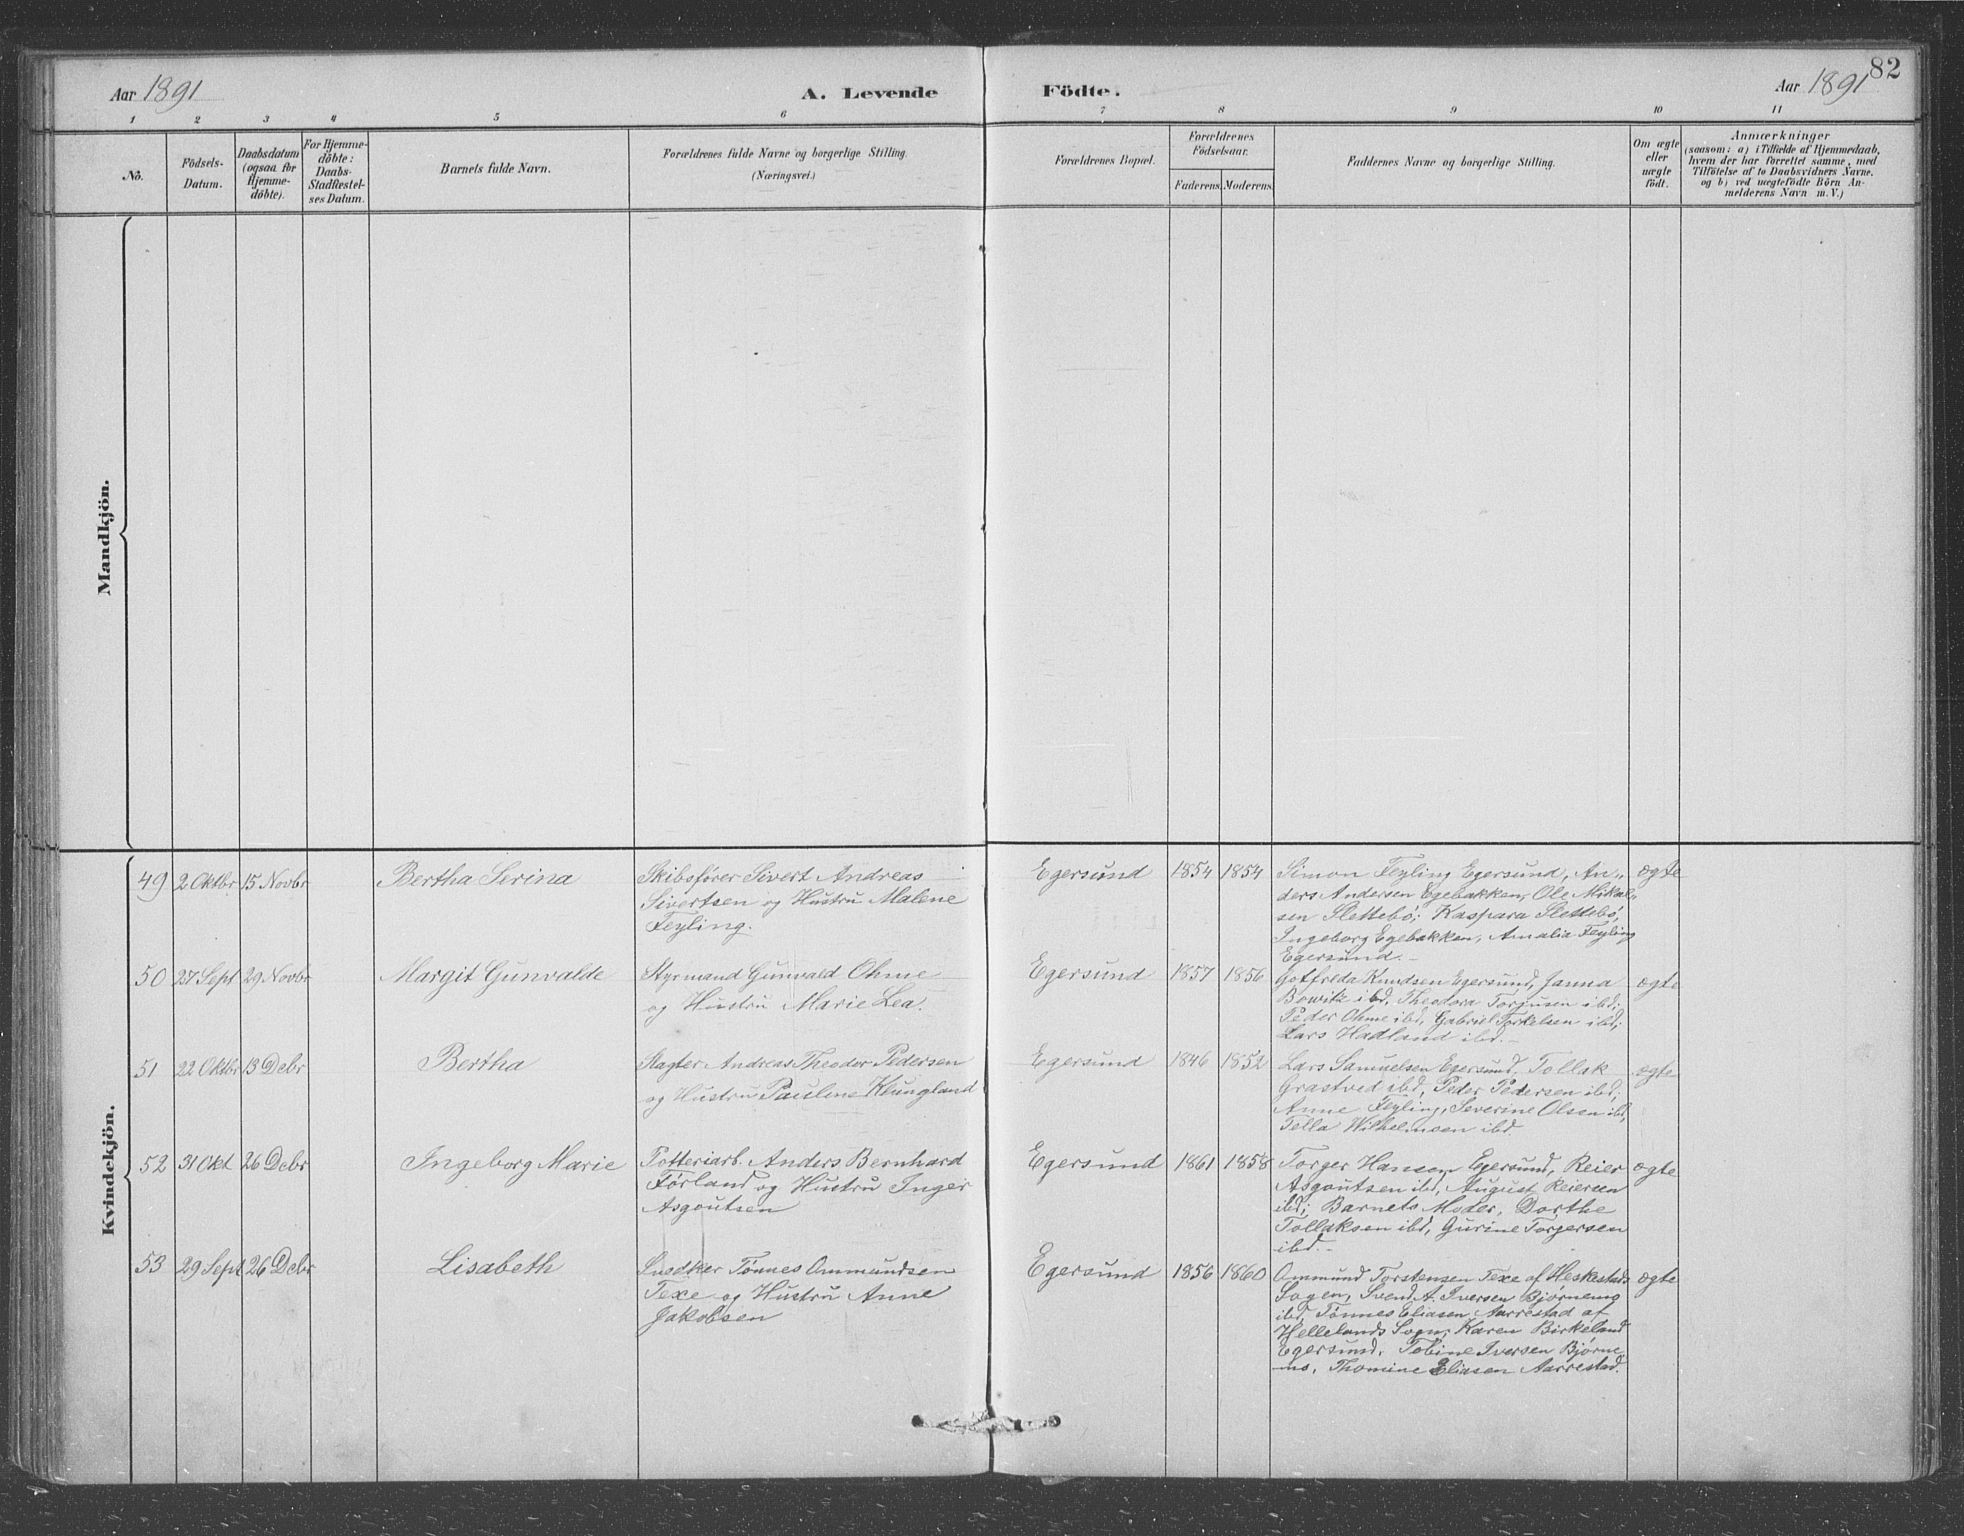 82
Aar 1891
A. Levende
Födte.
Aar 1891
1 2 3 4 5 6 7 8 9 10 11
No.
Födsels-
Datum.
Daabsdatum
(ogsaa for
Hjemme-
döbte).
For Hjemme-
döbte:
Daabs-
Stadfæstel-
ses Datum.
Barnets fulde Navn.
Forældrenes fulde Navne og borgerlige Stilling.
(Næringsvei.)
Forældrenes Bopæl.
Forældrenes
Födselsaar.
Faderens. Moderens.
Faddernes Navne og borgerlige Stilling.
Om ægte
eller
uægte
födt.
Anmærkninger
(saasom: a) i Tilfælde af Hjemmedaab,
hvem der har forrettet samme, med
Tilföielse af to Daabsvidners Navne,
og b) ved uægtefödte Börn An-
melderens Navn m.V.)
Mandkjön.
Kvindekjön.
49 2 Oktbr 15 Novbr Bertha Serina
Skibsfører Sivert Andreas
Sivertsen og Hustru Malene
Feyling.
Egersund 1854 1854
Simon Feyling Egersund, An-
ders Andersen Egebakken, Ole Mikal-
sen Slettebö; Kaspara Slettebö,
Ingeborg Egebakken, Amalia Feyling
Egersund.
ægte
50 27 Sept 29 Novbr Margit Gunvalde
Styrmand Gunvald Ohme
og Hustru Marie Lea.
Egersund 1857 1856
Gotfreda Knudsen Egersund, Janna
Bowitz ibd, Theodora Torjusen ibd;
Peder Ohme ibd, Gabriel Torkelsen ibd;
Lars Hadland ibd.
ægte
51 22 Oktbr 13 Debr Bertha
Slagter Andreas Theodor Pedersen
og Hustru Pauline Klungland
Egersund 1846 1852
Lars Samuelsen Egersund, Tollak
Grastved ibd, Peder Pedersen ibd;
Anne Feyling, Severine Olsen ibd,
Tella Wilhelmsen ibd.
ægte
52 31 Okt 26 Debr Ingeborg Marie
Potteriarb. Anders Bernhard
Førland og Hustru Inger
Asgoutsen
Egersund 1861 1858
Torger Hansen Egersund, Reier
Asgoutsen ibd, August Reiersen
ibd; Barnets Moder, Dorthe
Tollaksen ibd, Gurine Torgersen
ibd.
ægte
53 29 Sept 26 Debr Lisabeth
Tønnes Ommundsen
Texe og Hustru Anne
Jakobsen
Egersund 1856 1860
Ommund Torstensen Texe af Heskestads
Sogen, Svend A. Iversen Bjørnemo
ibd, Tønnes Eliasen Aarrestad af
Hellelands Sogn; Karen Birkeland
Egersund, Tobine Iversen Bjørne
mo, Thomine Eliasen Aarrestad.
ægte